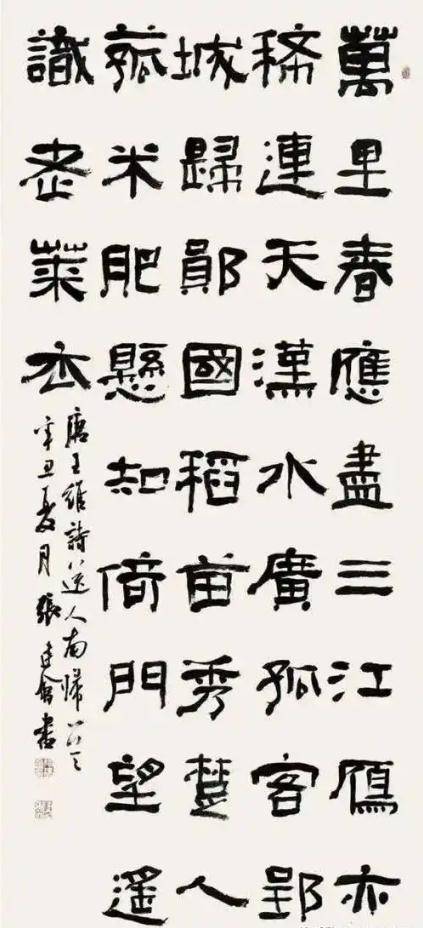 萬里春應盡三江鴈亦
稀連天漢水廣孤客郢
城歸鄖國稻苗秀楚人
菰米肥懸知倚門望遥
識老萊衣
唐王維詩送人南歸
辛丑夏月張建會書